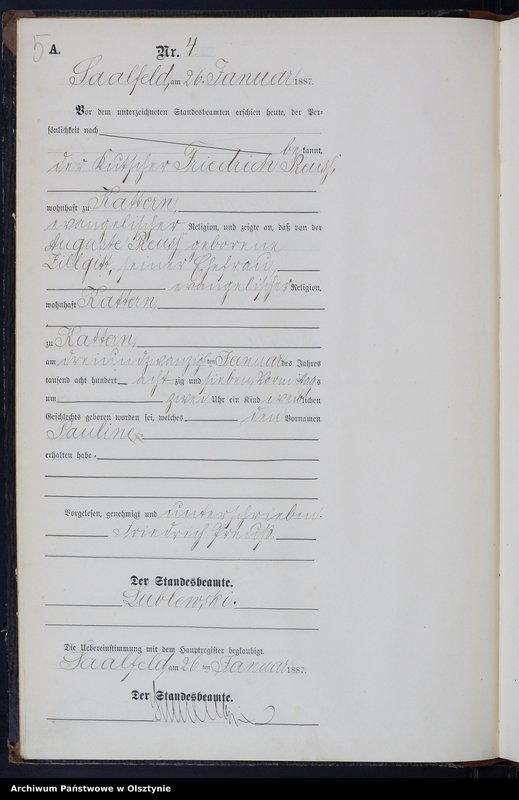 5 A. Nr. 4
Saalfeld, am 26. Januar 1887.
Vor dem unterzeichneten Standesbeamten erschien heute, der Per-
sönlichkeit nach
be kannt,
der Kutscher Friedrich
wohnhaft zu Kattern,
evangelischer Religion, und zeigte an, daß von der
Auguste geborene
seiner Ehefrau,
evangelischer Religion,
wohnhaft Kattern
zu Kattern
am dreiundzwanzig ten Januar des Jahres
tausend acht hundert acht zig und sieben, Vormittags
um zwei Uhr ein Kind weiblichen
Geschlechts geboren worden sei, welches den Vornamen
Pauline
erhalten habe.
Vorgelesen, genehmigt und unterschrieben:
Friedrich Preuß
Der Standesbeamte.
Lublewski.
Die Uebereinstimmung mit dem Hauptregister beglaubigt.
Saalfeld am 26 ten Januar 1887.
Der Standesbeamte.
Archiwum Państwowe w Olsztynie